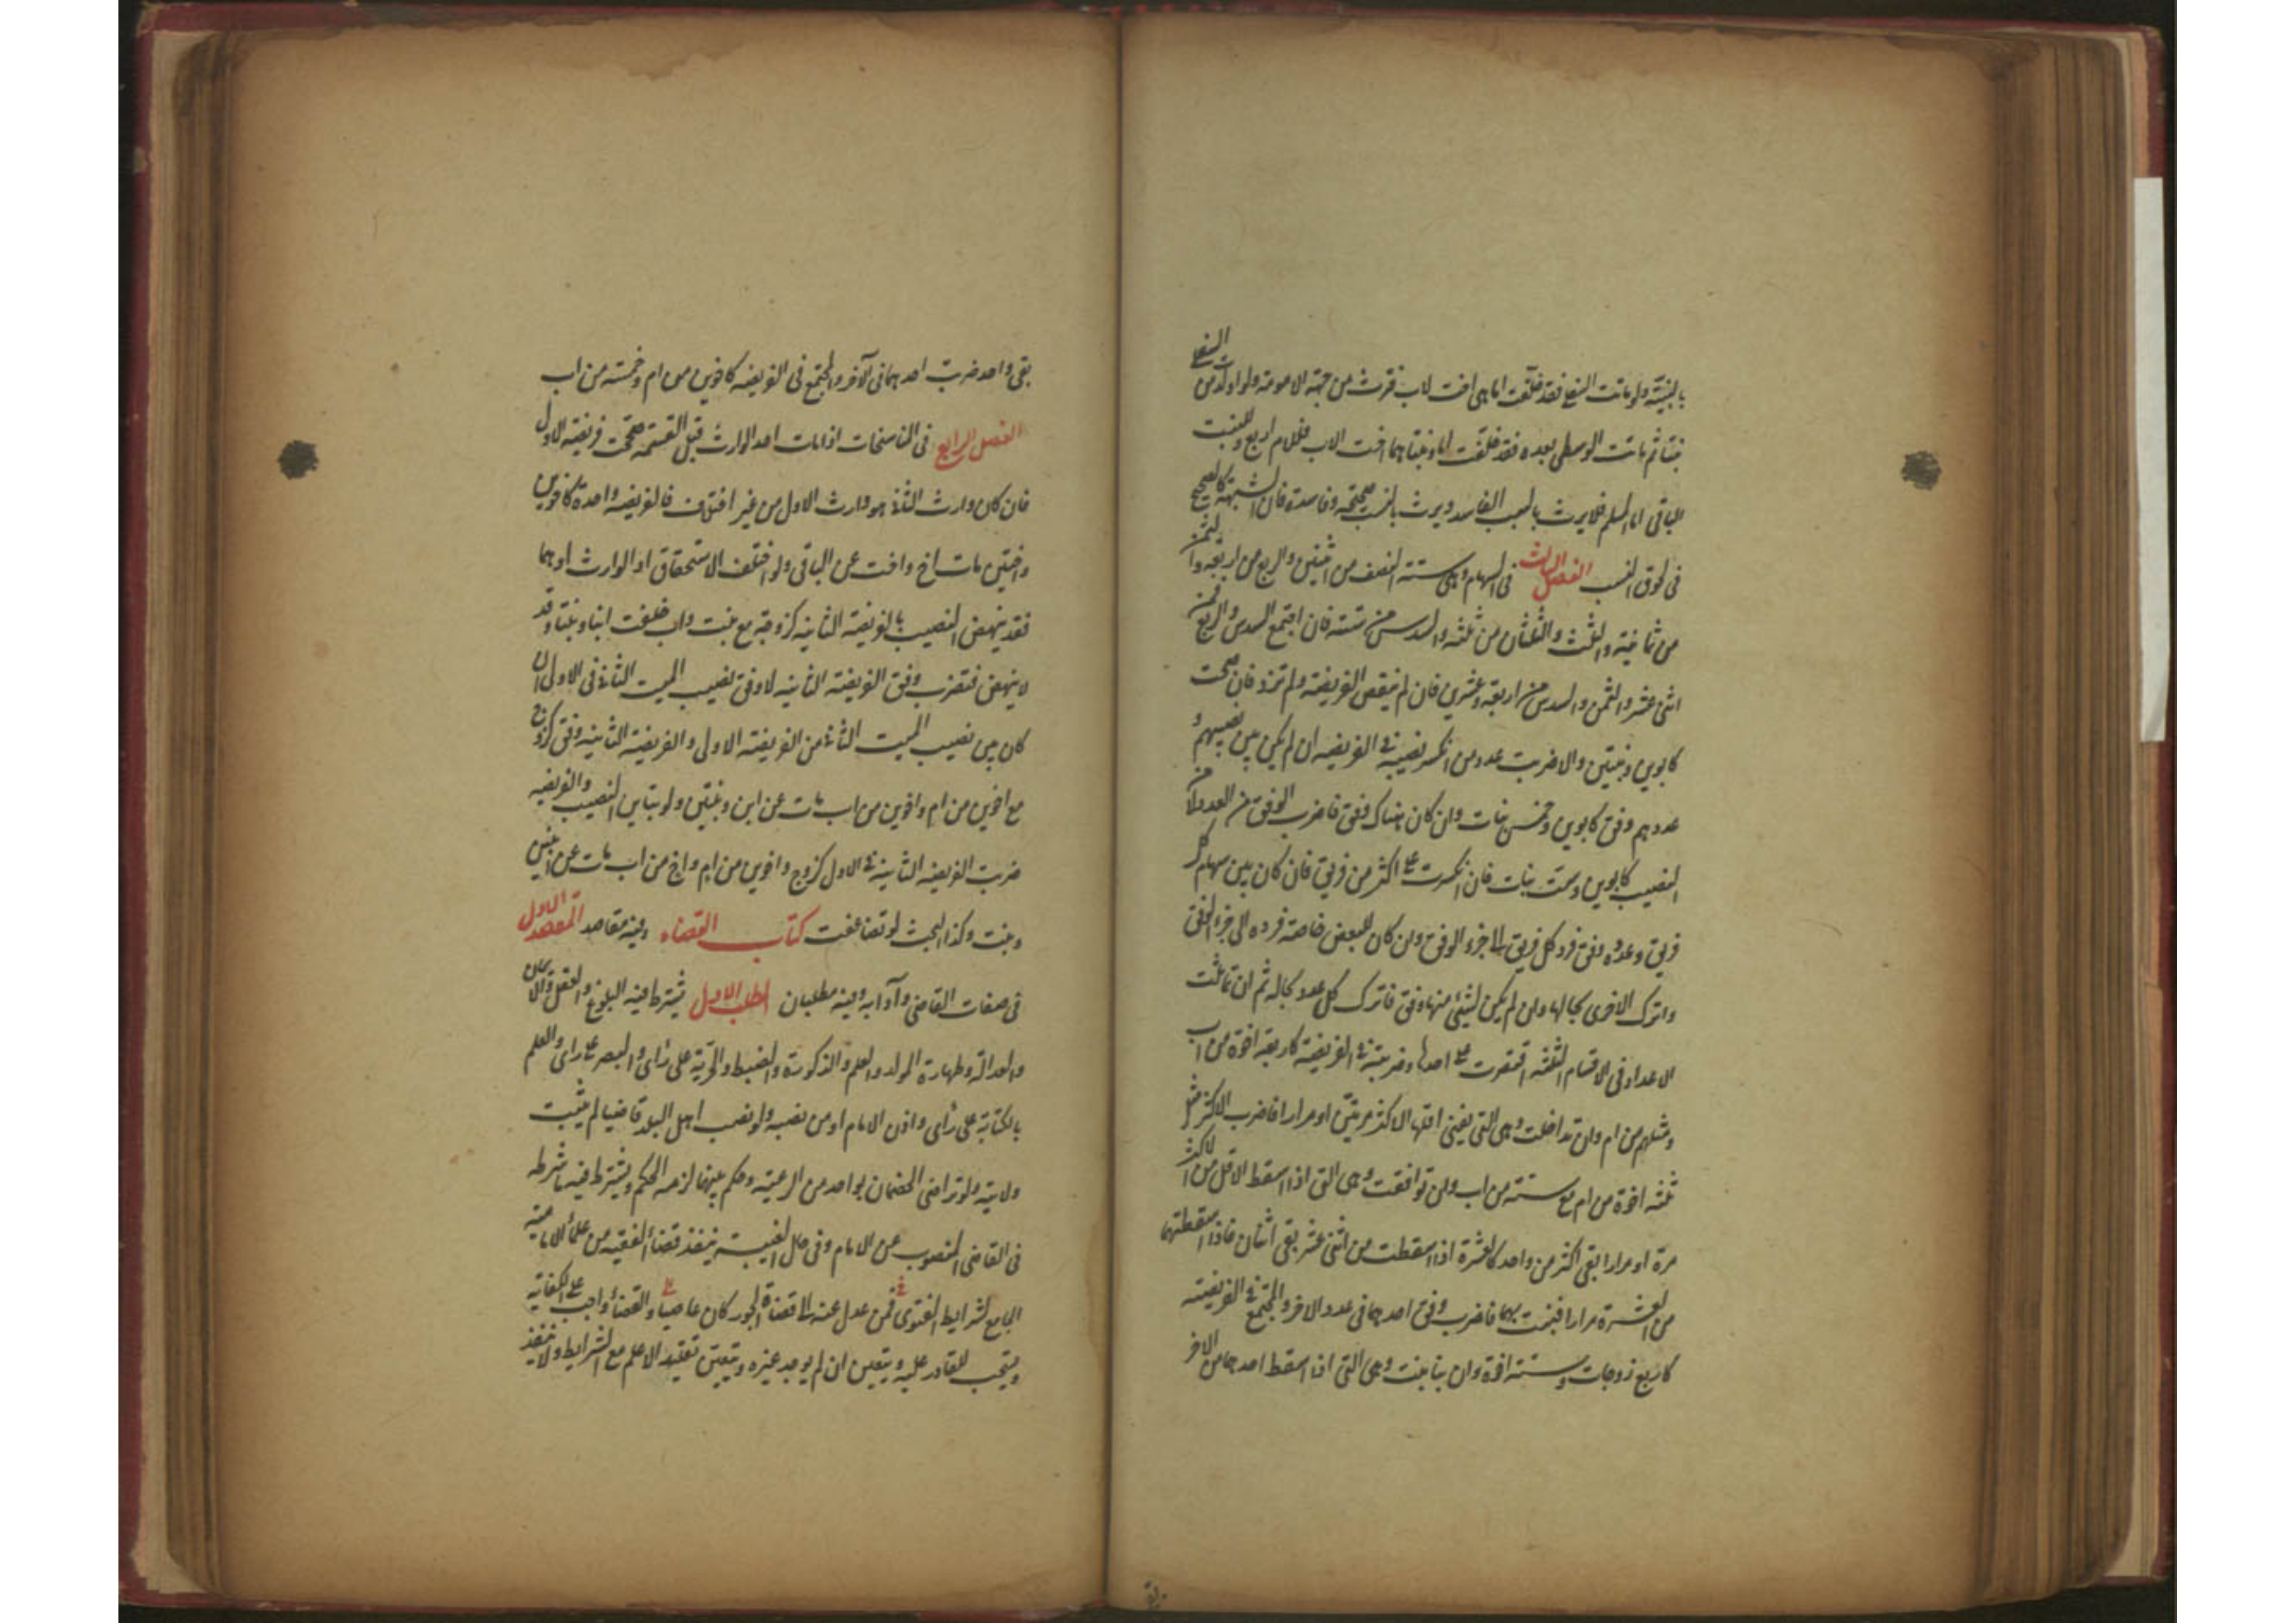 بالبنتية ولو ماتت السفلى فقد خلفت اما هي اخت لاب فترث من جهة الامومة ولو اولد من السفلى
بنتا ثم ماتت الوسطى بعده فقد خلفت اما وبنتا هما اخت الاب فللام الربع وللبنت
الباقى اما المسلم فلا يرث بالسبب الفاسد ويرث بالنسب صحيحه وفاسده فان الشبهة كالصحيح
فى لحوق النسب الفصل الثالث فى السهام وهى ستة النصف من اثنين والربع من اربعة والثمن
من ثمانية والثلث والثلثان من ثلثة والسدس من ستة فان اجتمع السدس والربع فمن
اثنى عشر والثمن والسدس من اربعة وعشرين فان لم ينقص الفريضة ولم تزد فان صحت
كابوين وبنتين والا ضربت عدد من انكسر نصيبه فى الفريضة ان لم يكن بين نصيبهم و
عددهم وفق كابوين وخمس بنات وان كان هناك وفق فاضرب الوفق من العدد لا من
النصيب كابوين وست بنات فان انكسرت على اكثر من فريق فان كان بين سهام كل
فريق وعدده وفق فرد كل فريق الى جزء الوفق وان كان للبعض خاصة فرده الى جزء الوفق
واترك الاخرى بحالها وان لم يكن لشئ منها وفق فاترك كل عدد بحاله ثم ان تماثلت
الاعداد فى الاقسام الثلثة اقتصرت على احدها وضربته فى الفريضة كاربعة اخوة من اب
ومثلهم من ام وان تداخلت وهى التى يفنى اقلها الاكثر مرتين او مرارا فاضرب الاكثر مثل
ثلثة اخوة من ام مع ستة من اب وان توافقت وهى التى اذا اسقط الاقل من الاكثر
مرة او مرارا بقى اكثر من واحد كالعشرة اذا اسقطت من اثنى عشر بقى اثنان فاذا اسقطتهما
من العشرة مرارا فنيت بهما فاضرب وفق احدهما فى عدد الاخر والمجتمع فى الفريضة
كاربع زوجات وستة اخوة وان تباينت وهى التى اذا اسقط احدهما من الاخر
بقى واحد ضربت احدهما فى الآخر والمجتمع فى الفريضة كاخوين من ام وخمسة من اب
الفصل الرابع فى المناسخات اذا مات احد الوارث قبل القسمة صححت فريضة الاول
فان كان وارث الثانى هو وارث الاول من غير اختلاف فالفريضة واحدة كاخوين
واختين مات اخ واخت عن الباقى ولو اختلف الاستحقاق او الوارث او هما
فقد ينهض النصيب بالفريضة الثانية كزوجة مع بنت واب خلفت ابنا وبنتا وقد
لا ينهض فتضرب وفق الفريضة الثانية لا وفق نصيب الميت الثانى فى الاولى ان
كان بين نصيب الميت الثانى من الفريضة الاولى والفريضة الثانية وفق كزوج
مع اخوين من ام واخوين من اب مات عن ابن وبنتين ولو تباين النصيب والفريضة
ضربت الفريضة الثانية فى الاولى كزوج واخوين من ام واخ من اب مات عن ابنين
وبنت وكذا البحث لو تضاعفت كتاب القضاء وفيه مقاصد المقصد الاول
فى صفات القاضى وآدابه وفيه مطلبان المطلب الاول يشترط فيه البلوغ والعقل والايمان
والعدالة وطهارة المولد والعلم والذكورة والضبط والحرية على رأى والبصر على رأى والعلم
بالكتابة على رأى واذن الامام او من نصبه ولو نصب اهل البلد قاضيا لم يثبت
ولايته ولو تراضى الخصمان بواحد من الرعية وحكم بينهما لزمه الحكم ويشترط فيه ما شرط
فى القاضى المنصوب عن الامام وفى حال الغيبة ينفذ قضاء الفقيه من علماء الامامية
الجامع لشرايط الفتوى فمن عدل عنه الى قضاة الجور كان عاصيا والقضاء واجب على الكفاية
ويستحب للقادر عليه ويتعين ان لم يوجد غيره ويتعين تقليد الاعلم مع الشرايط ولا ينفذ